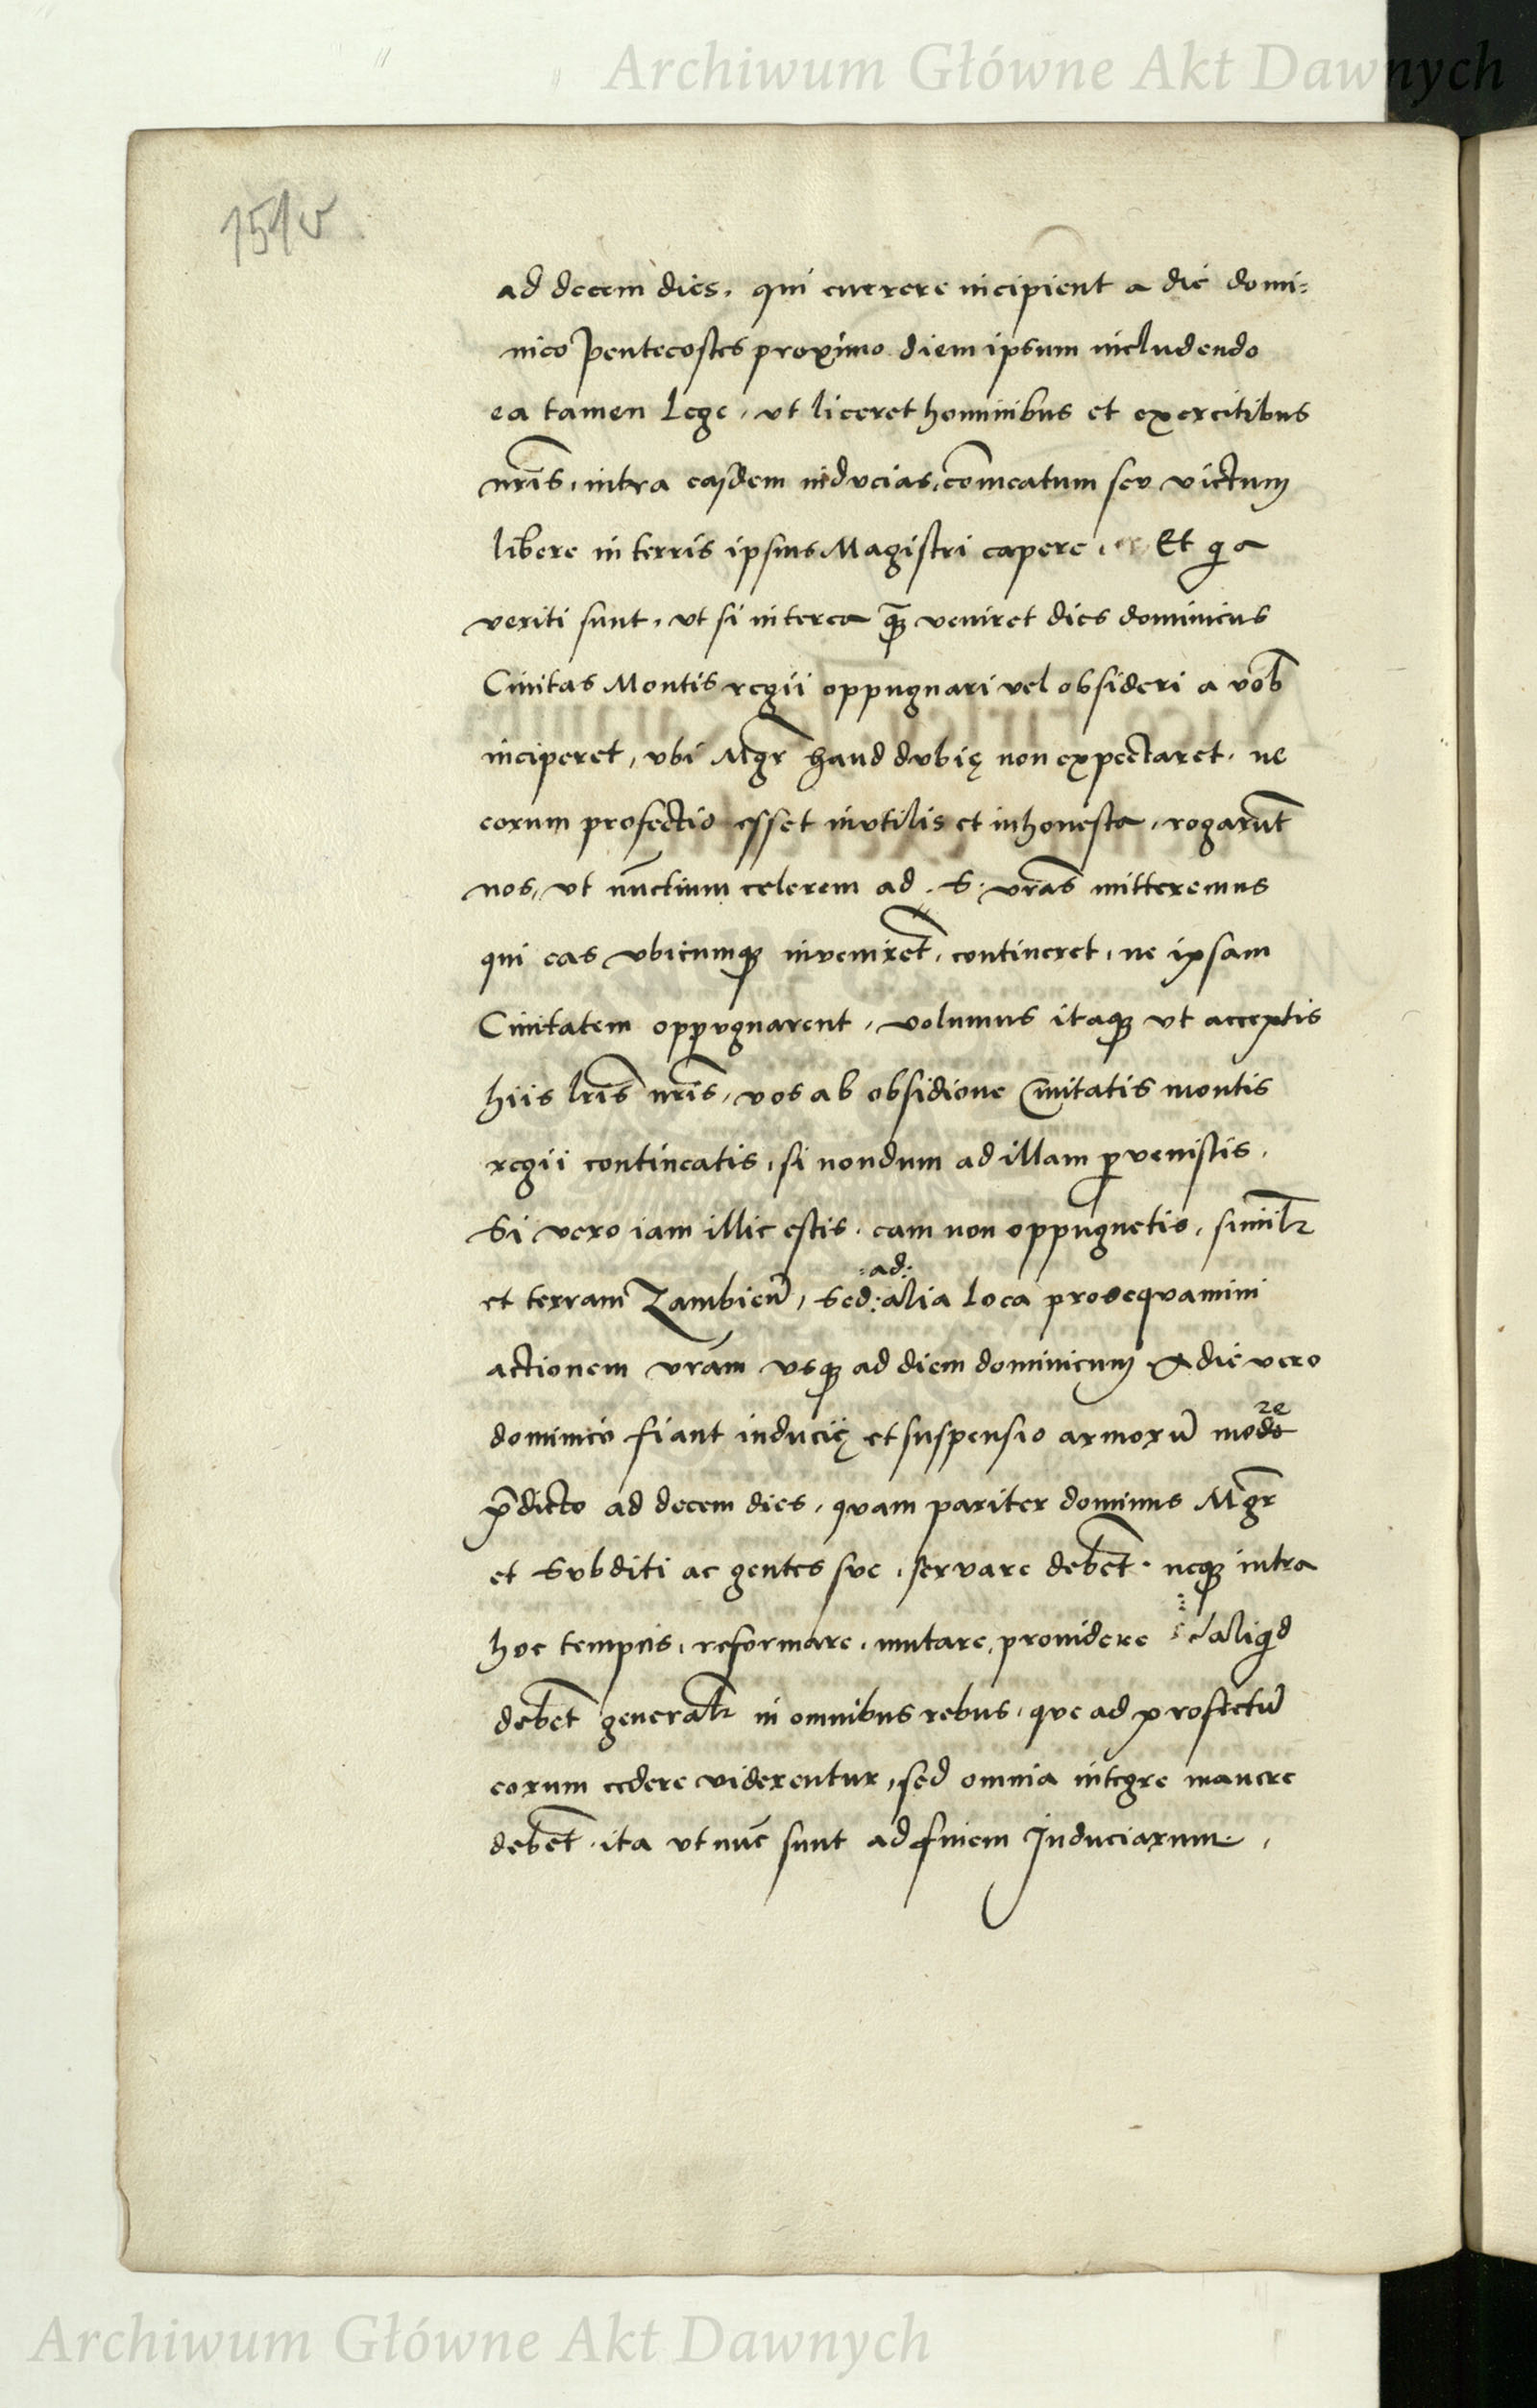 Archiwum Główne Akt Dawnych
151v
ad decem dies, qui currere incipient a die domi=
nico Pentecostes proximo diem ipsum includendo
ea tamen Lege, vt liceret hominibus et exercitibus
nr̃is, intra easdem inducias, com̃eatum seu victum
libere in terris ipsius Magistri capere, Et qia
veriti sunt, vt si interea qꝫ̃ veniret dies dominicus
Ciuitas Montis regii oppugnari vel obsideri a vob̃
inciperet, vbi Mgr̃ haud dubię non expectaret, ne
eorum profectio esset inutilis et inhonesta, rogarũt
nos, vt nũctium celerem ad. S. vr̃as mitteremus
qui eas vbicumqꝫ invenirẽt, contineret, ne ipsam
Ciuitatem oppvgnarent, volumus itaqꝫ vt acceptis
hiis lr̃is nr̃is, vos ab obsidione Ciuitatis montis
regii contineatis, si nondum ad illam ꝑvenistis,
Si vero iam illic estis, eam non oppugnetis, similr̃
et terram Zambieñ, Sed :ad: alia Loca prosequamini
actionem vr̃am vsqꝫ ad diem dominicum A die vero
dominico fiant inducię et suspensio armorũ modo re
p̃dicto ad decem dies, quam pariter dominus Mgr̃
et Subditi ac gentes sue, servare debẽt, neqꝫ intra
hoc tempus, reformare, mutare, prouidere aliqid
debẽt generalr̃ in omnibus rebus, que ad profectũ
eorum cedere viderentur, sed omnia integre manere
debẽt, ita vt nũc sunt ad finem Induciarum,
Archiwum Główne Akt Dawnych